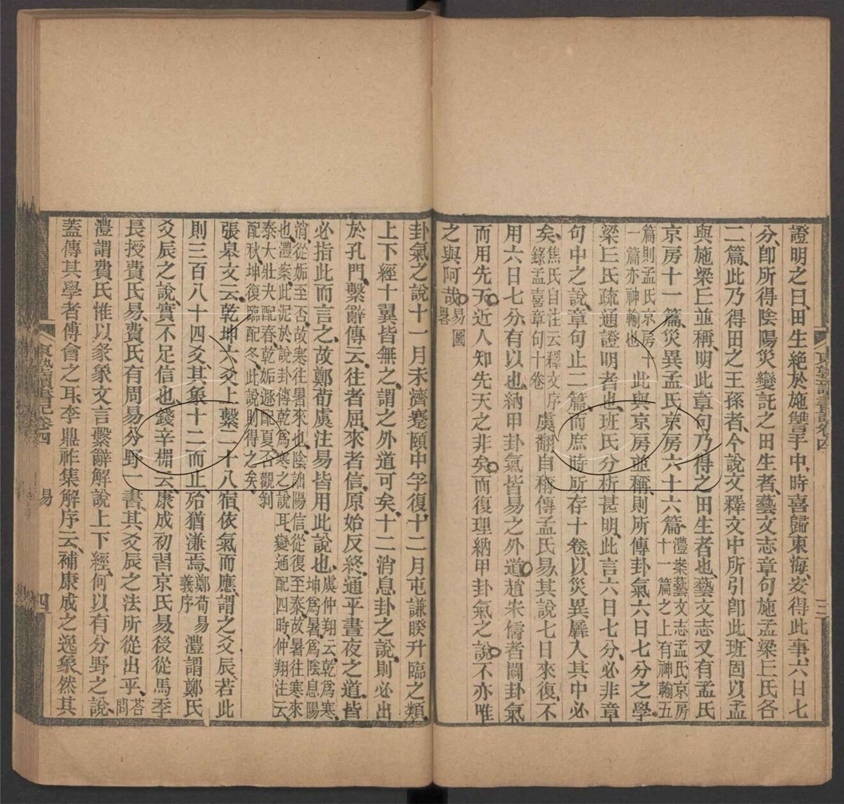 證明之曰田生絕於施讎手中時喜歸東海安得此事六日七
分卽所得陰陽災變託之田生者藝文志章句施孟梁丘氏各
二篇此乃得田之王孫者今說文釋文中所引卽此班固以孟
與施梁丘並稱明此章句乃得之田生者也藝文志又有孟氏
京房十一篇災異孟氏京房六十六篇澧案藝文志孟氏京房十一篇之上有神輸五
篇則孟氏京房十一篇亦神輸也此與京房並稱則所傳卦氣六日七分之學
梁丘氏疏通證明者也班氏分析甚明此言六日七分必非章
句中之說章句止二篇而庶時所存十卷以災異羼入其中必
矣焦氏自注云釋文序錄孟喜章句十卷虞翻自稱傳孟氏易其說七日來復不
用六日七分有以也納甲卦氣皆易之外道趙宋儒者闢卦氣
而用先天近人知先天之非矣而復理納甲卦氣之說不亦唯
之與阿哉易圖畧
卦氣之說十一月未濟蹇頤中孚復十二月屯謙睽升臨之類
上下經十翼皆無之謂之外道可矣十二消息卦之說則必出
於孔門繫辭傳云往者屈來者信原始反終通乎晝夜之道皆
必指此而言之故鄭荀虞注易皆用此說也虞仲翔云乾爲寒坤爲暑爲陰息陽
消從姤至否故寒往暑來也陰詘陽信從復至泰故暑往寒來也澧案此泥於說卦傳乾爲寒之說耳變通配四時仲翔注云
泰大壯夬配春乾姤遯配夏否觀剝配秋坤復臨配冬此說則得之矣
張皋文云乾坤六爻上繫二十八宿依氣而應謂之爻辰若此
則三百八十四爻其象十二而止殆猶溓焉鄭荀易義序澧謂鄭氏
爻辰之說實不足信也錢辛楣云康成初習京氏易後從馬季
長授費氏易費氏有周易分野一書其爻辰之法所從出乎荅問
澧謂費氏惟以彖象文言繫辭解說上下經何以有分野之說
蓋傳其學者傅會之耳李鼎祚集解序云補康成之逸象然其
東塾讀書記卷四
易
四